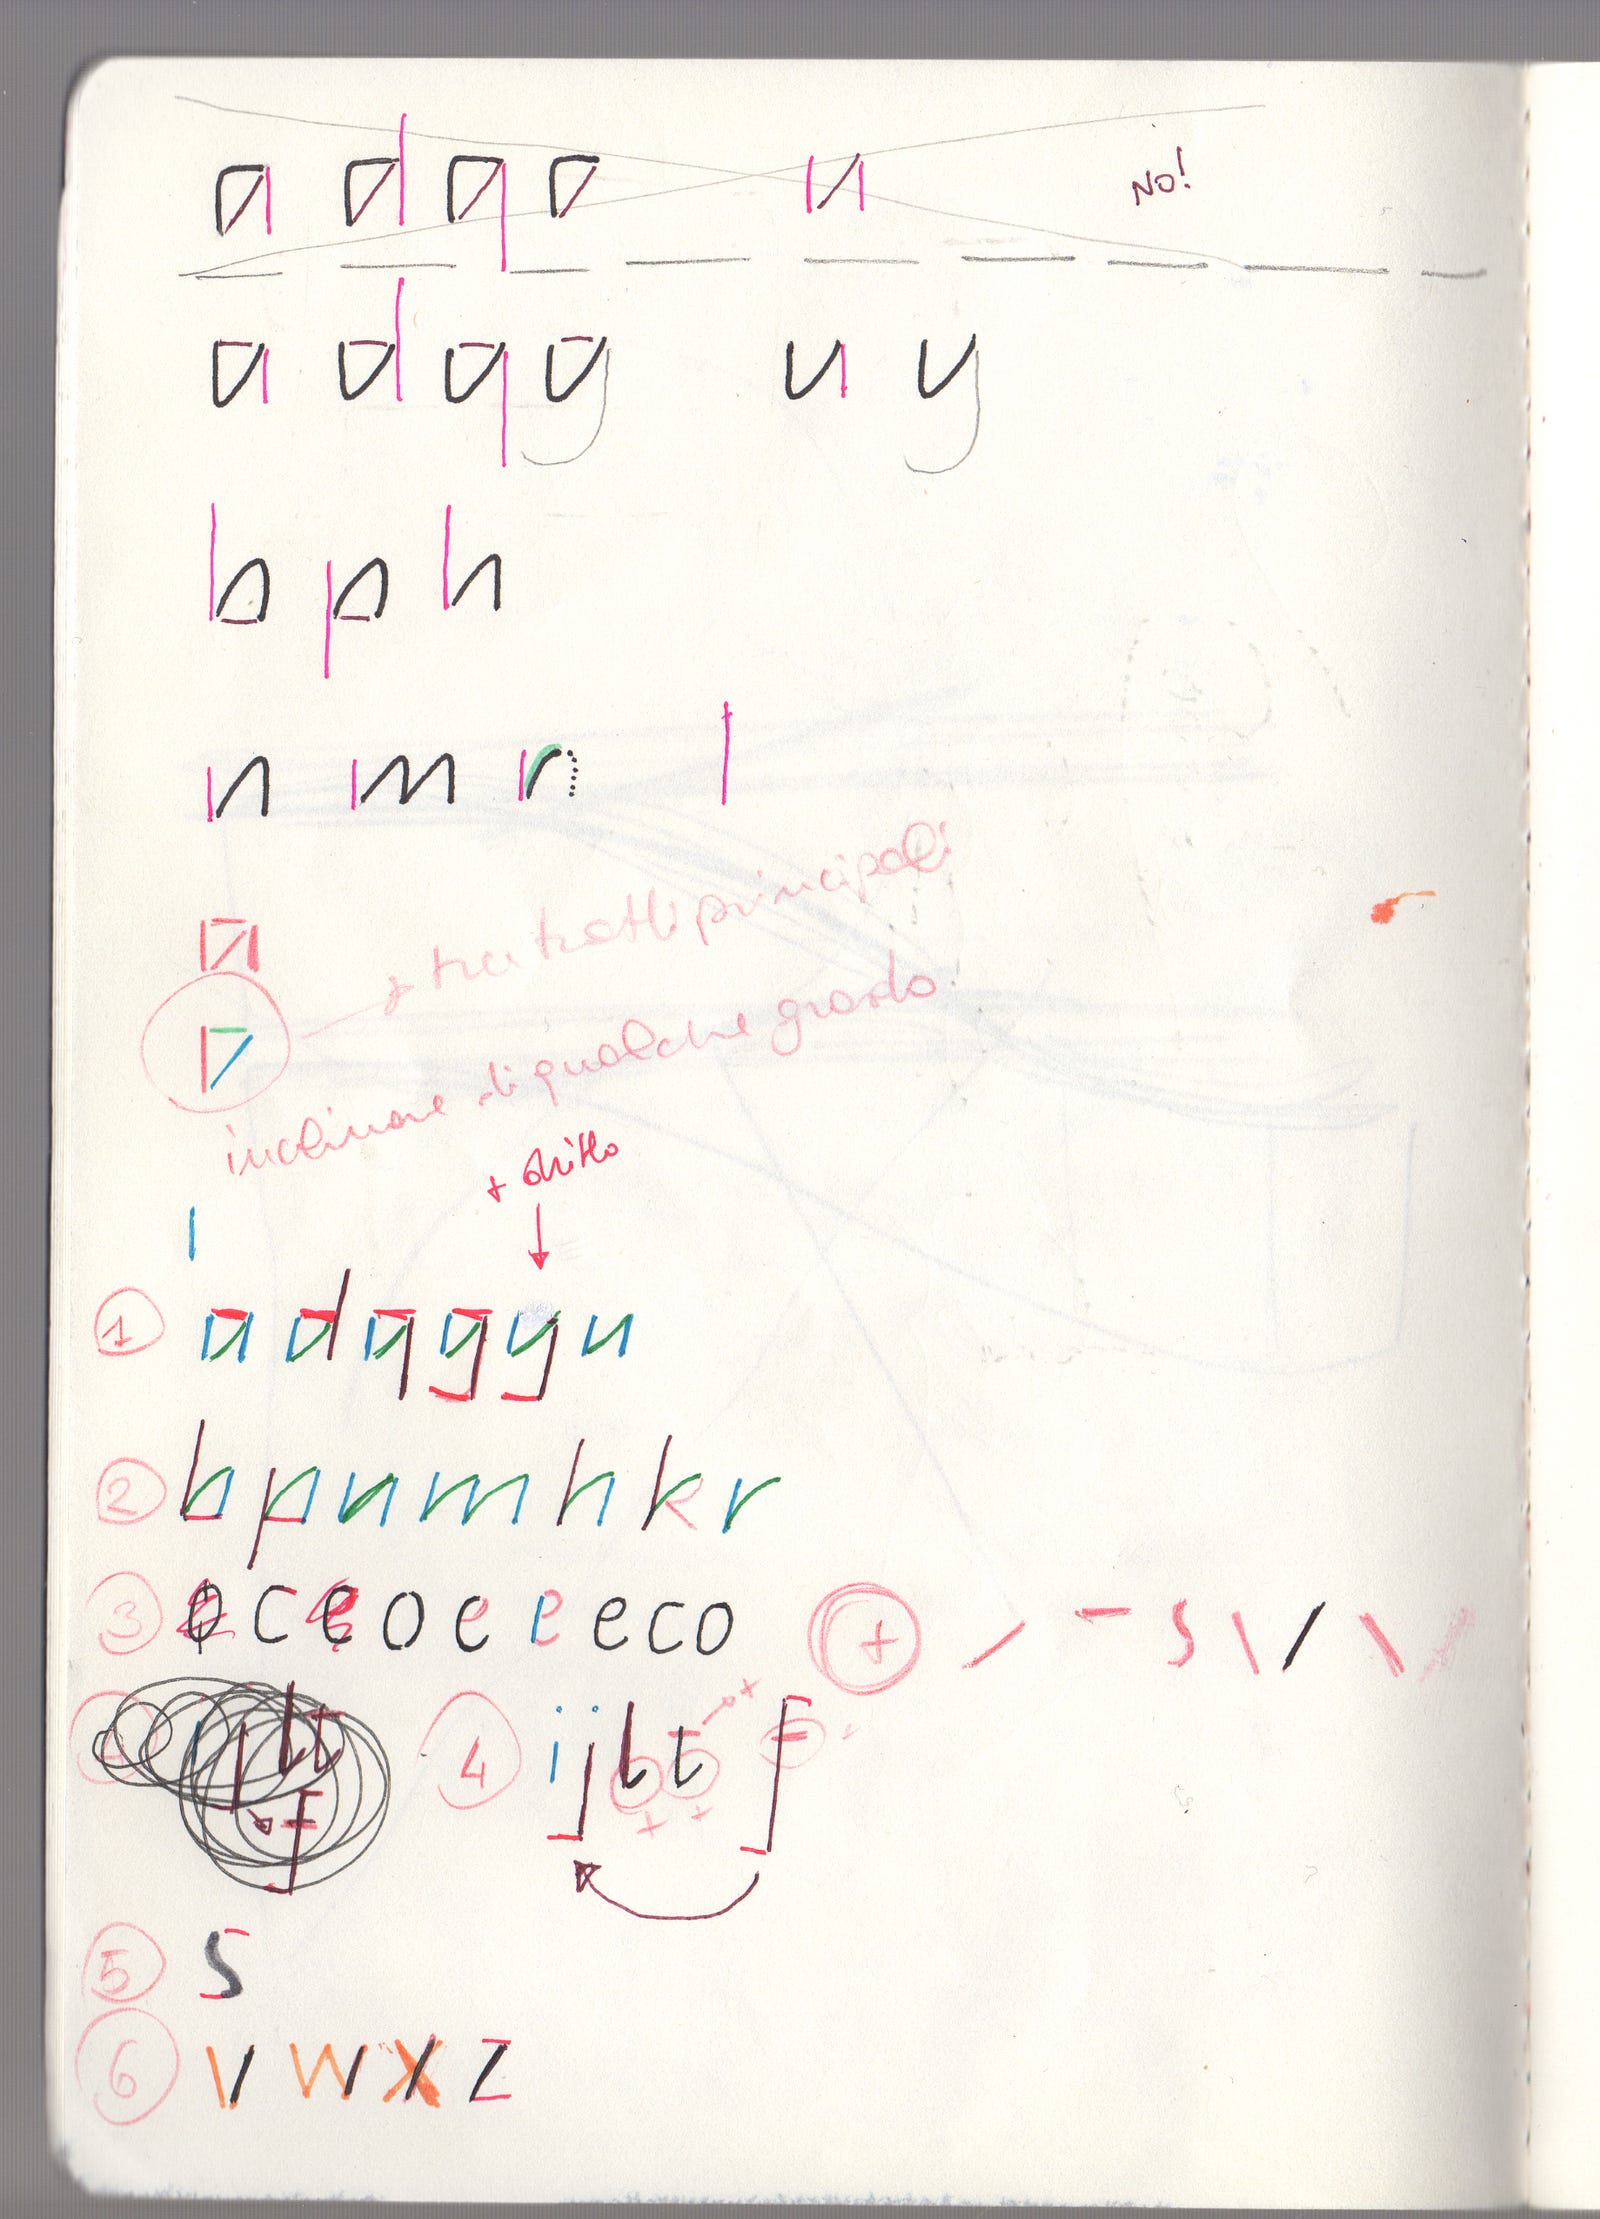 a d q o u NO!
a d q g u y
b p h
n m r l
+ tre tratti principali
inclinare di qualche grado
+ dritto
l
1 a d q g y u
2 b p n m h k r
3 o c e o e e e c o + / - s \ / \
4 i j l t f
5 s
6 v w x z